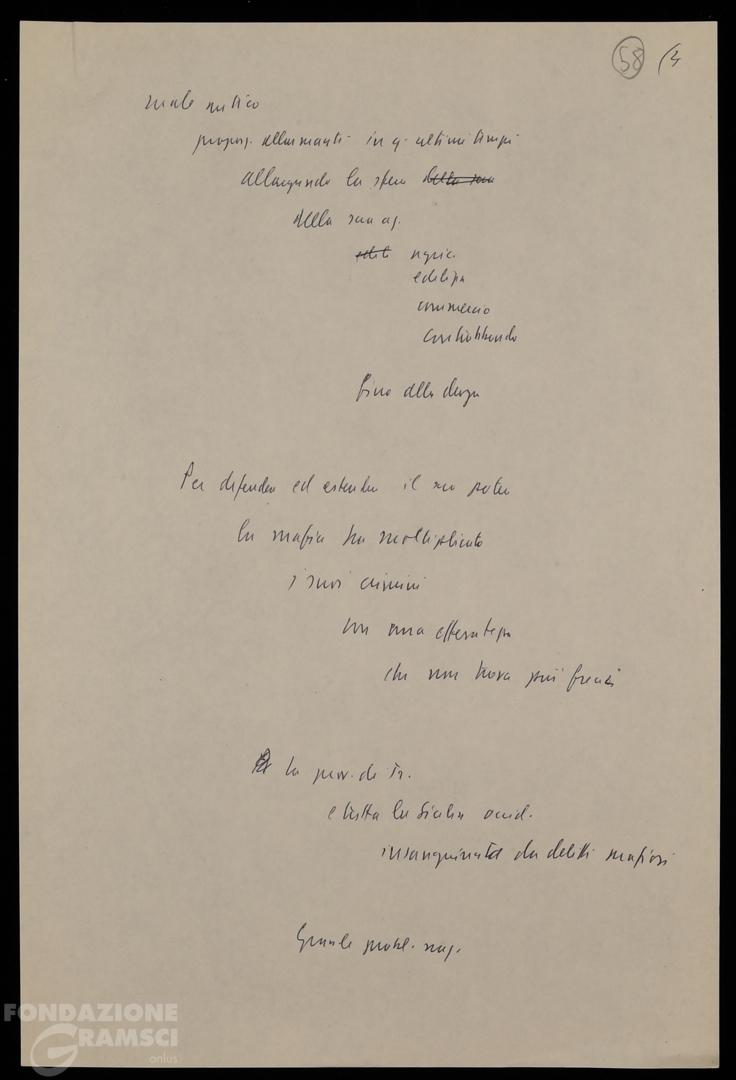 58 (4
male antico
propoz. allarmanti in q. ultimi tempi
allargando la sfera della sua
della sua az.
edili agric.
edilizia
commercio
contrabbando
fino alla droga
Per difendere ed estendere il suo potere
la mafia ha moltiplicato
i suoi crimini
con una efferatezza
che non trova più freni
la prov. di Tr.
e tutta la Sicilia occid.
insanguinata da delitti mafiosi
Grande probl. naz.
FONDAZIONE
GRAMSCI
onlus